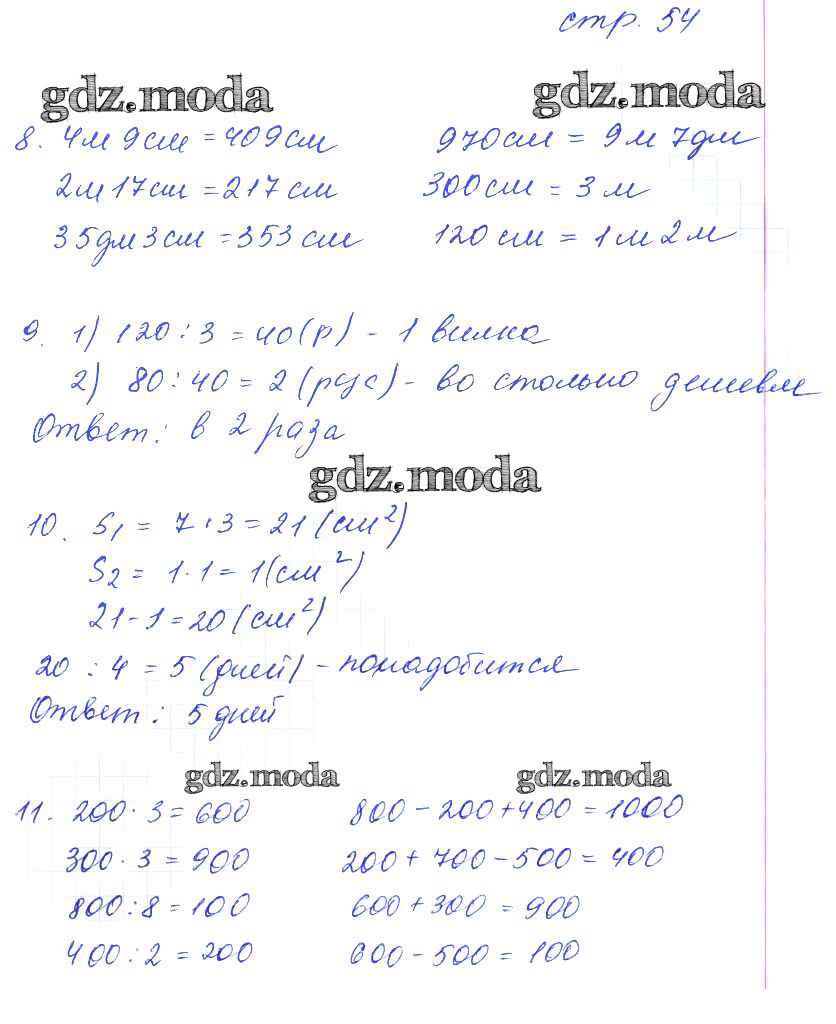 стр. 54
gdz.moda gdz.moda
8. 4м 9см = 409см 970см = 9м 7дм
2м 17см = 217см 300см = 3м
35дм 3см = 353см 120см = 1м 2м
9. 1) 120 : 3 = 40 (р) - 1 вилка
2) 80 : 40 = 2 (рус) - во столько дешевле
Ответ: в 2 раза
gdz.moda
10. S₁ = 7 · 3 = 21 (см²)
S₂ = 1 · 1 = 1 (см²)
21 - 1 = 20 (см²)
20 : 4 = 5 (дней) - понадобится
Ответ: 5 дней
gdz.moda gdz.moda
11. 200 · 3 = 600 800 - 200 + 400 = 1000
300 · 3 = 900 200 + 700 - 500 = 400
800 : 8 = 100 600 + 300 = 900
400 : 2 = 200 600 - 500 = 100